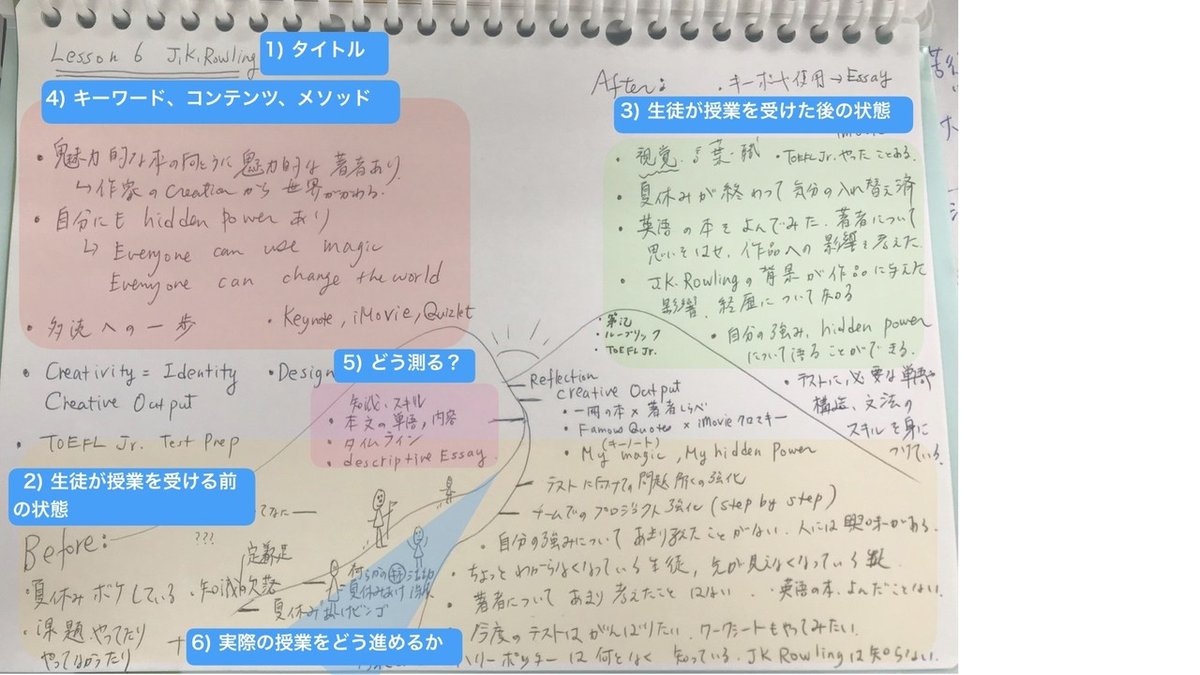 Lesson 6 J.K.Rowling
1) タイトル
After:
・キーボード使用→Essay
4) キーワード、コンテンツ、メソッド
3) 生徒が授業を受けた後の状態
・魅力的な本の向こうに魅力的な著者あり
↳作家のCreationから世界がかわる.
・自分にも hidden power あり
↳ Everyone can use magic
Everyone can change the world
・多読への一歩
・Keynote, iMovie, Quizlet
・視覚
・TOEFL Jr. やったことある.
・夏休みが終わって気分の入れ替え済
・英語の本をよんでみた. 著者について
思いをはせ, 作品への影響を考えた.
・J.K. Rowlingの背景が作品に与えた
影響, 経歴について知る
・筆記
・ルーブリック
・TOEFL Jr.
・自分の強み, hidden power
について語ることができる.
・Creativity = Identity
Creative Output
・Design
・TOEFL Jr. Test Prep
5) どう測る？
知識・スキル
・本文の単語, 内容
・タイムライン
・descriptive Essay.
Reflection
Creative Output
・一冊の本×著者しらべ
・Famous Quotes × iMovie クロマキー
(キーノート)
・My magic, My hidden Power
・テストに必要な単語や
構造, 文法の
スキルを身に
つけている.
2) 生徒が授業を受ける前
の状態
Before:
???
定着足
・夏休みボケしている
・知識の欠落
・課題やってたり
やってなかったり
夏休み
テストに向けての問題解くの強化
チームでのプロジェクト強化 (step by step)
・自分の強みについてあまり考えたことがない. 人には興味がある.
・ちょっとわからなくなっている生徒, 先が見えなくなっている
・著者についてあまり考えたことはない.
・英語の本, よんだことない.
・今度のテストはがんばりたい. ワークシートもやってみたい.
6) 実際の授業をどう進めるか
ハリーポッターは何となく知っている. JK Rowlingは知らない.